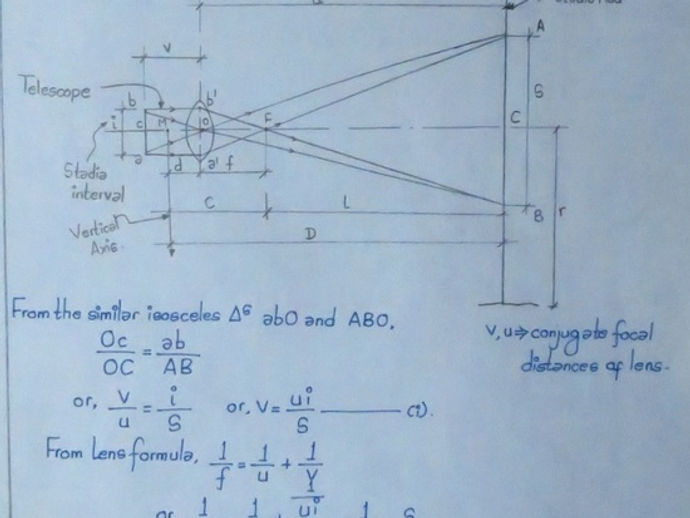 A
V
Telescope
b
b'
S
i
c
M
O
F
C
a
d
a'
f
Stadia
interval
C
L
B
r
Vertical
Axis.
D
From the similar isosceles Δs abO and ABO,
Oc/OC = ab/AB
or, v/u = i/S or, V = ui/S ——— (i).
V, u ⇒ conjugate focal
distances of lens.
From Lens formula, 1/f = 1/u + 1/V